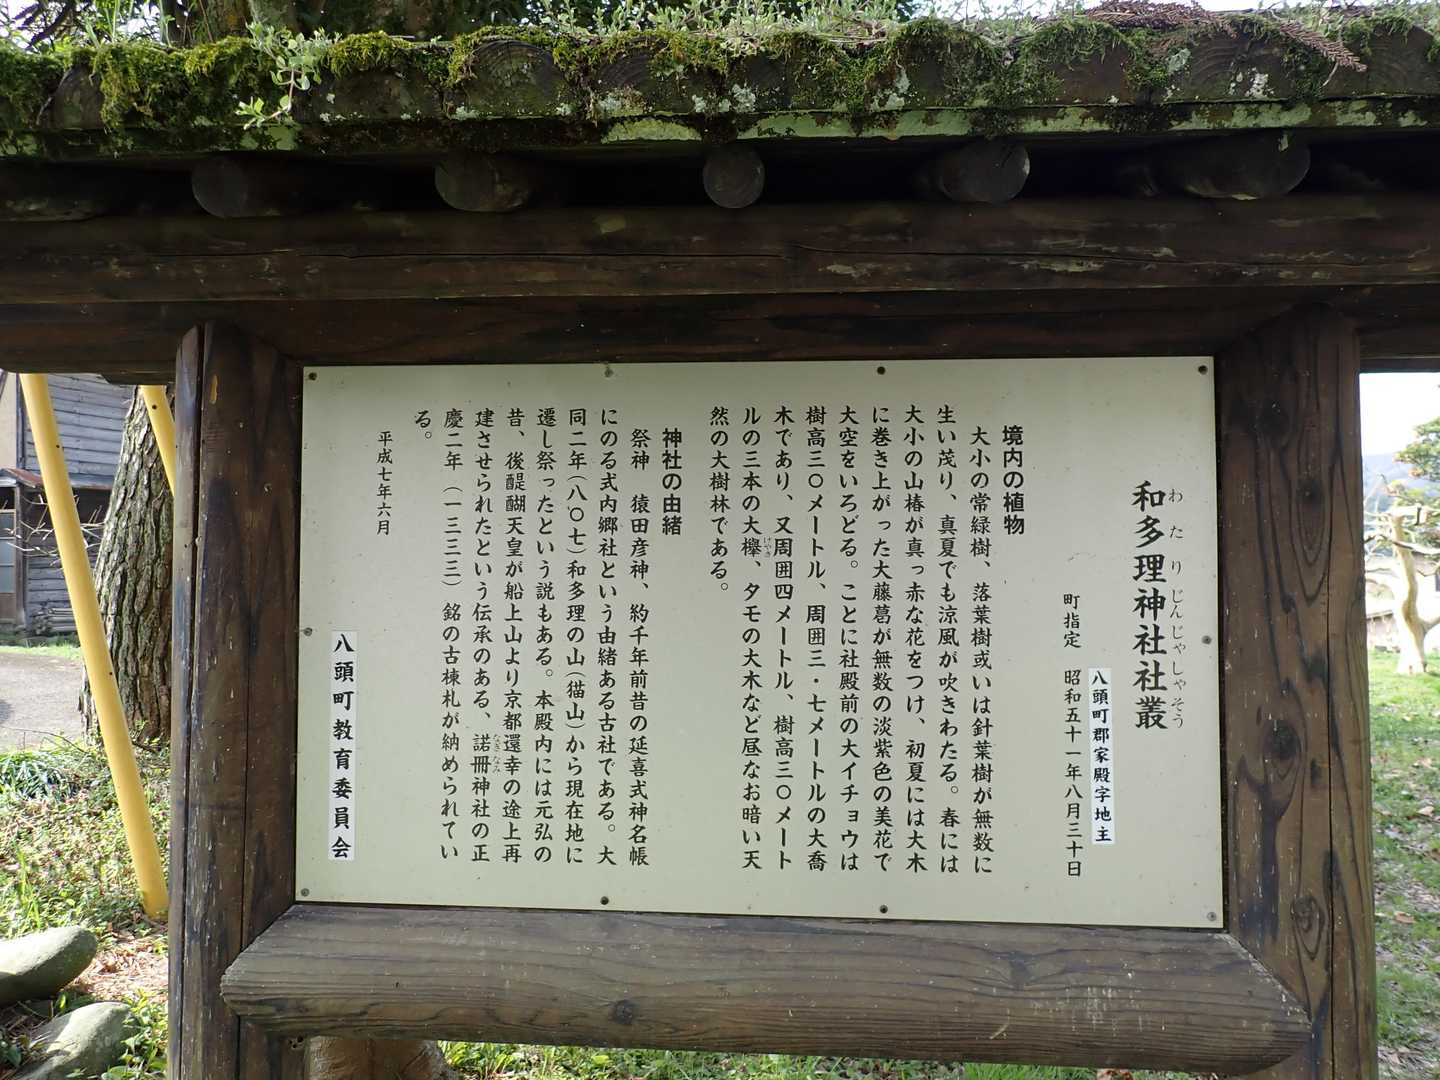 和多理神社社叢
わたりじんじゃしゃそう
八頭町郡家殿字地主
町指定 昭和五十一年八月三十日
境内の植物
大小の常緑樹、落葉樹或いは針葉樹が無数に
生い茂り、真夏でも涼風が吹きわたる。春には
大小の山椿が真っ赤な花をつけ、初夏には大木
に巻き上がった大藤葛が無数の淡紫色の美花で
大空をいろどる。ことに社殿前の大イチョウは
樹高三〇メートル、周囲三・七メートルの大喬
木であり、又周囲四メートル、樹高三〇メート
ルの三本の大欅、タモの大木など昼なお暗い天
けやき
然の大樹林である。
神社の由緒
祭神 猿田彦神、約千年前昔の延喜式神名帳
にのる式内郷社という由緒ある古社である。大
同二年(八〇七)和多理の山(猫山)から現在地に
遷し祭ったという説もある。本殿内には元弘の
昔、後醍醐天皇が船上山より京都還幸の途上再
建させられたという伝承のある、諾冊神社の正
なぎなみ
慶二年(一三三三)銘の古棟札が納められてい
る。
平成七年六月
八頭町教育委員会